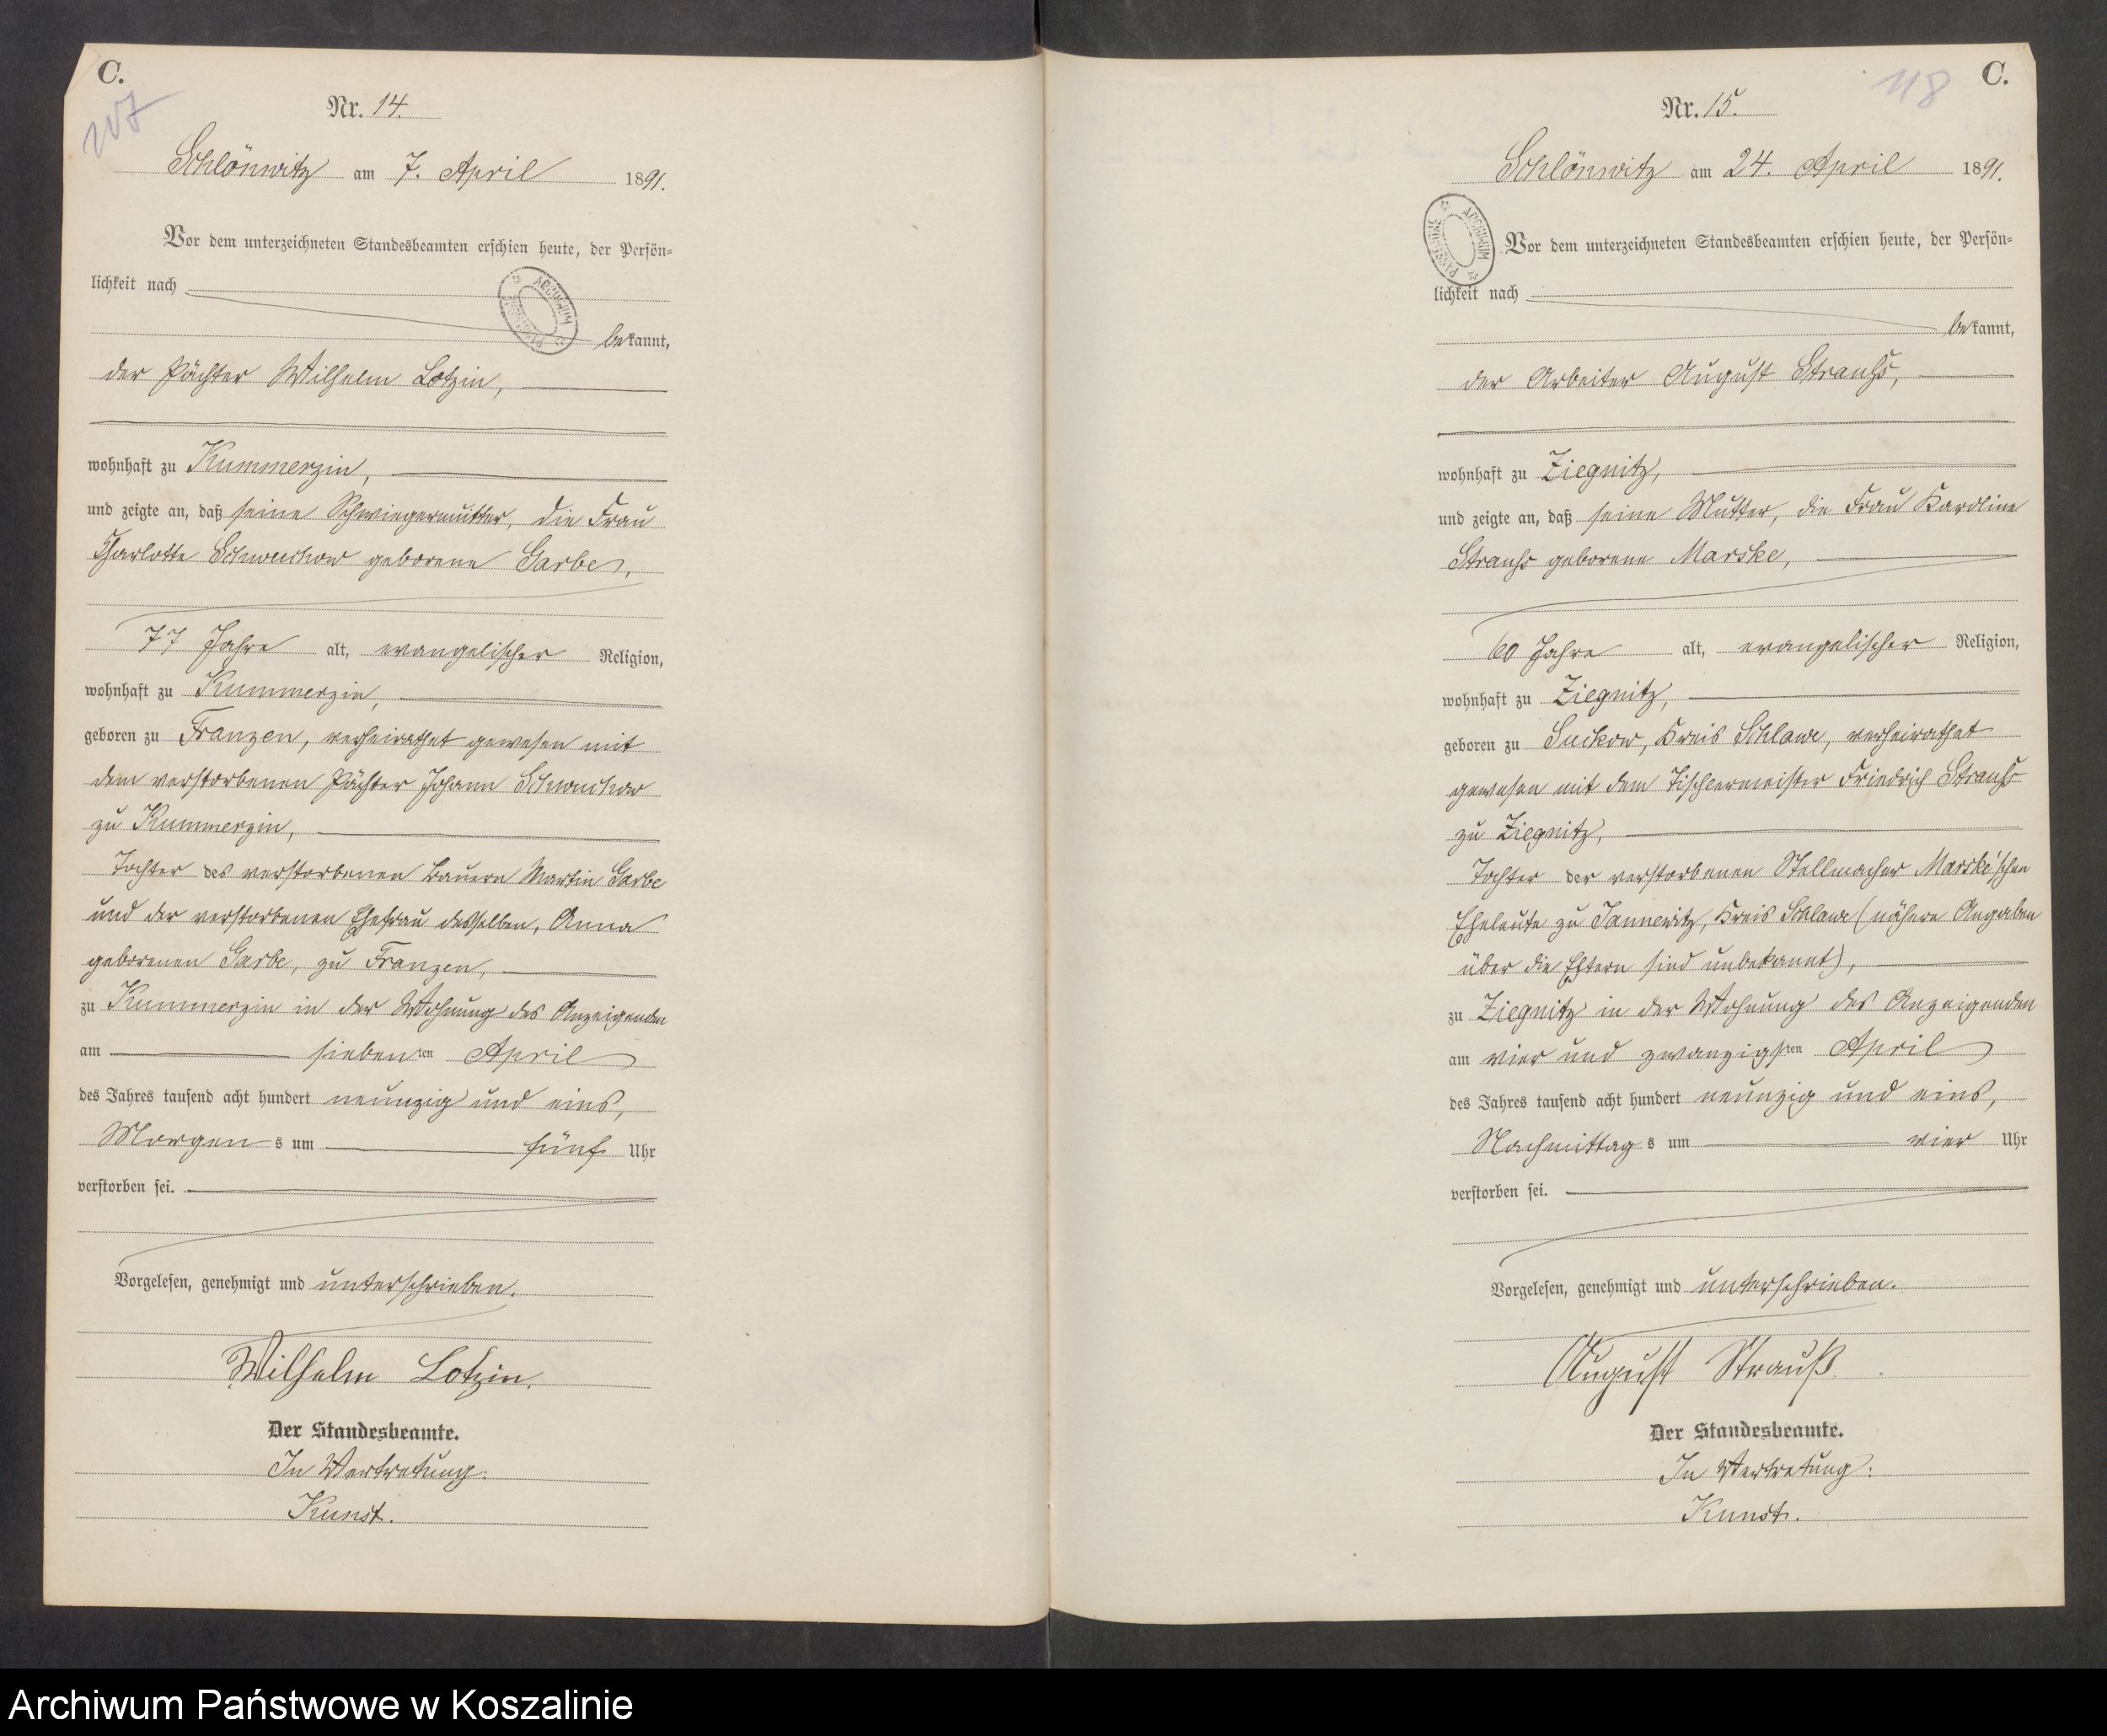 C.
Nr. 14.
Schlönwitz am 7. April 1891.
Vor dem unterzeichneten Standesbeamten erschien heute, der Persön=
lichkeit nach
bekannt,
der Pächter Wilhelm Lotzin,
wohnhaft zu Kummerzin,
und zeigte an, daß seine Schwiegermutter, die Frau
Charlotte Schwuchow geborene Garbe,
77 Jahre alt, evangelischer Religion,
wohnhaft zu Kummerzin,
geboren zu Franzen, verheirathet gewesen mit
dem verstorbenen Pächter Johann Schwuchow
zu Kummerzin,
Tochter des verstorbenen Bauern Martin Garbe
und der verstorbenen Ehefrau desselben, Anna
geborenen Garbe, zu Franzen,
zu Kummerzin in der Wohnung des Anzeigenden
am siebenten April
des Jahres tausend acht hundert neunzig und eins,
Morgens um fünf Uhr
verstorben sei.
Vorgelesen, genehmigt und unterschrieben.
Wilhelm Lotzin.
Der Standesbeamte.
In Vertretung:
Kunst.
118
C.
Nr. 15.
Schlönwitz am 24. April 1891.
ARCHIWUM
Vor dem unterzeichneten Standesbeamten erschien heute, der Persön=
lichkeit nach
bekannt,
der Arbeiter August Strauß,
wohnhaft zu Ziegnitz,
und zeigte an, daß seine Mutter, die Frau Karoline
Strauß geborene Marske,
60 Jahre alt, evangelischer Religion,
wohnhaft zu Ziegnitz,
geboren zu Suckow, Kreis Schlawe, verheirathet
gewesen mit dem Tischlermeister Friedrich Strauß
zu Ziegnitz,
Tochter der verstorbenen Stellmacher Marske'schen
Eheleute zu Jannewitz, Kreis Schlawe (nähere Angaben
über die Eltern sind unbekannt),
zu Ziegnitz in der Wohnung des Anzeigenden
am vier und zwanzigsten April
des Jahres tausend acht hundert neunzig und eins,
Nachmittags um vier Uhr
verstorben sei.
Vorgelesen, genehmigt und unterschrieben.
August Strauß.
Der Standesbeamte.
In Vertretung:
Kunst.
Archiwum Państwowe w Koszalinie